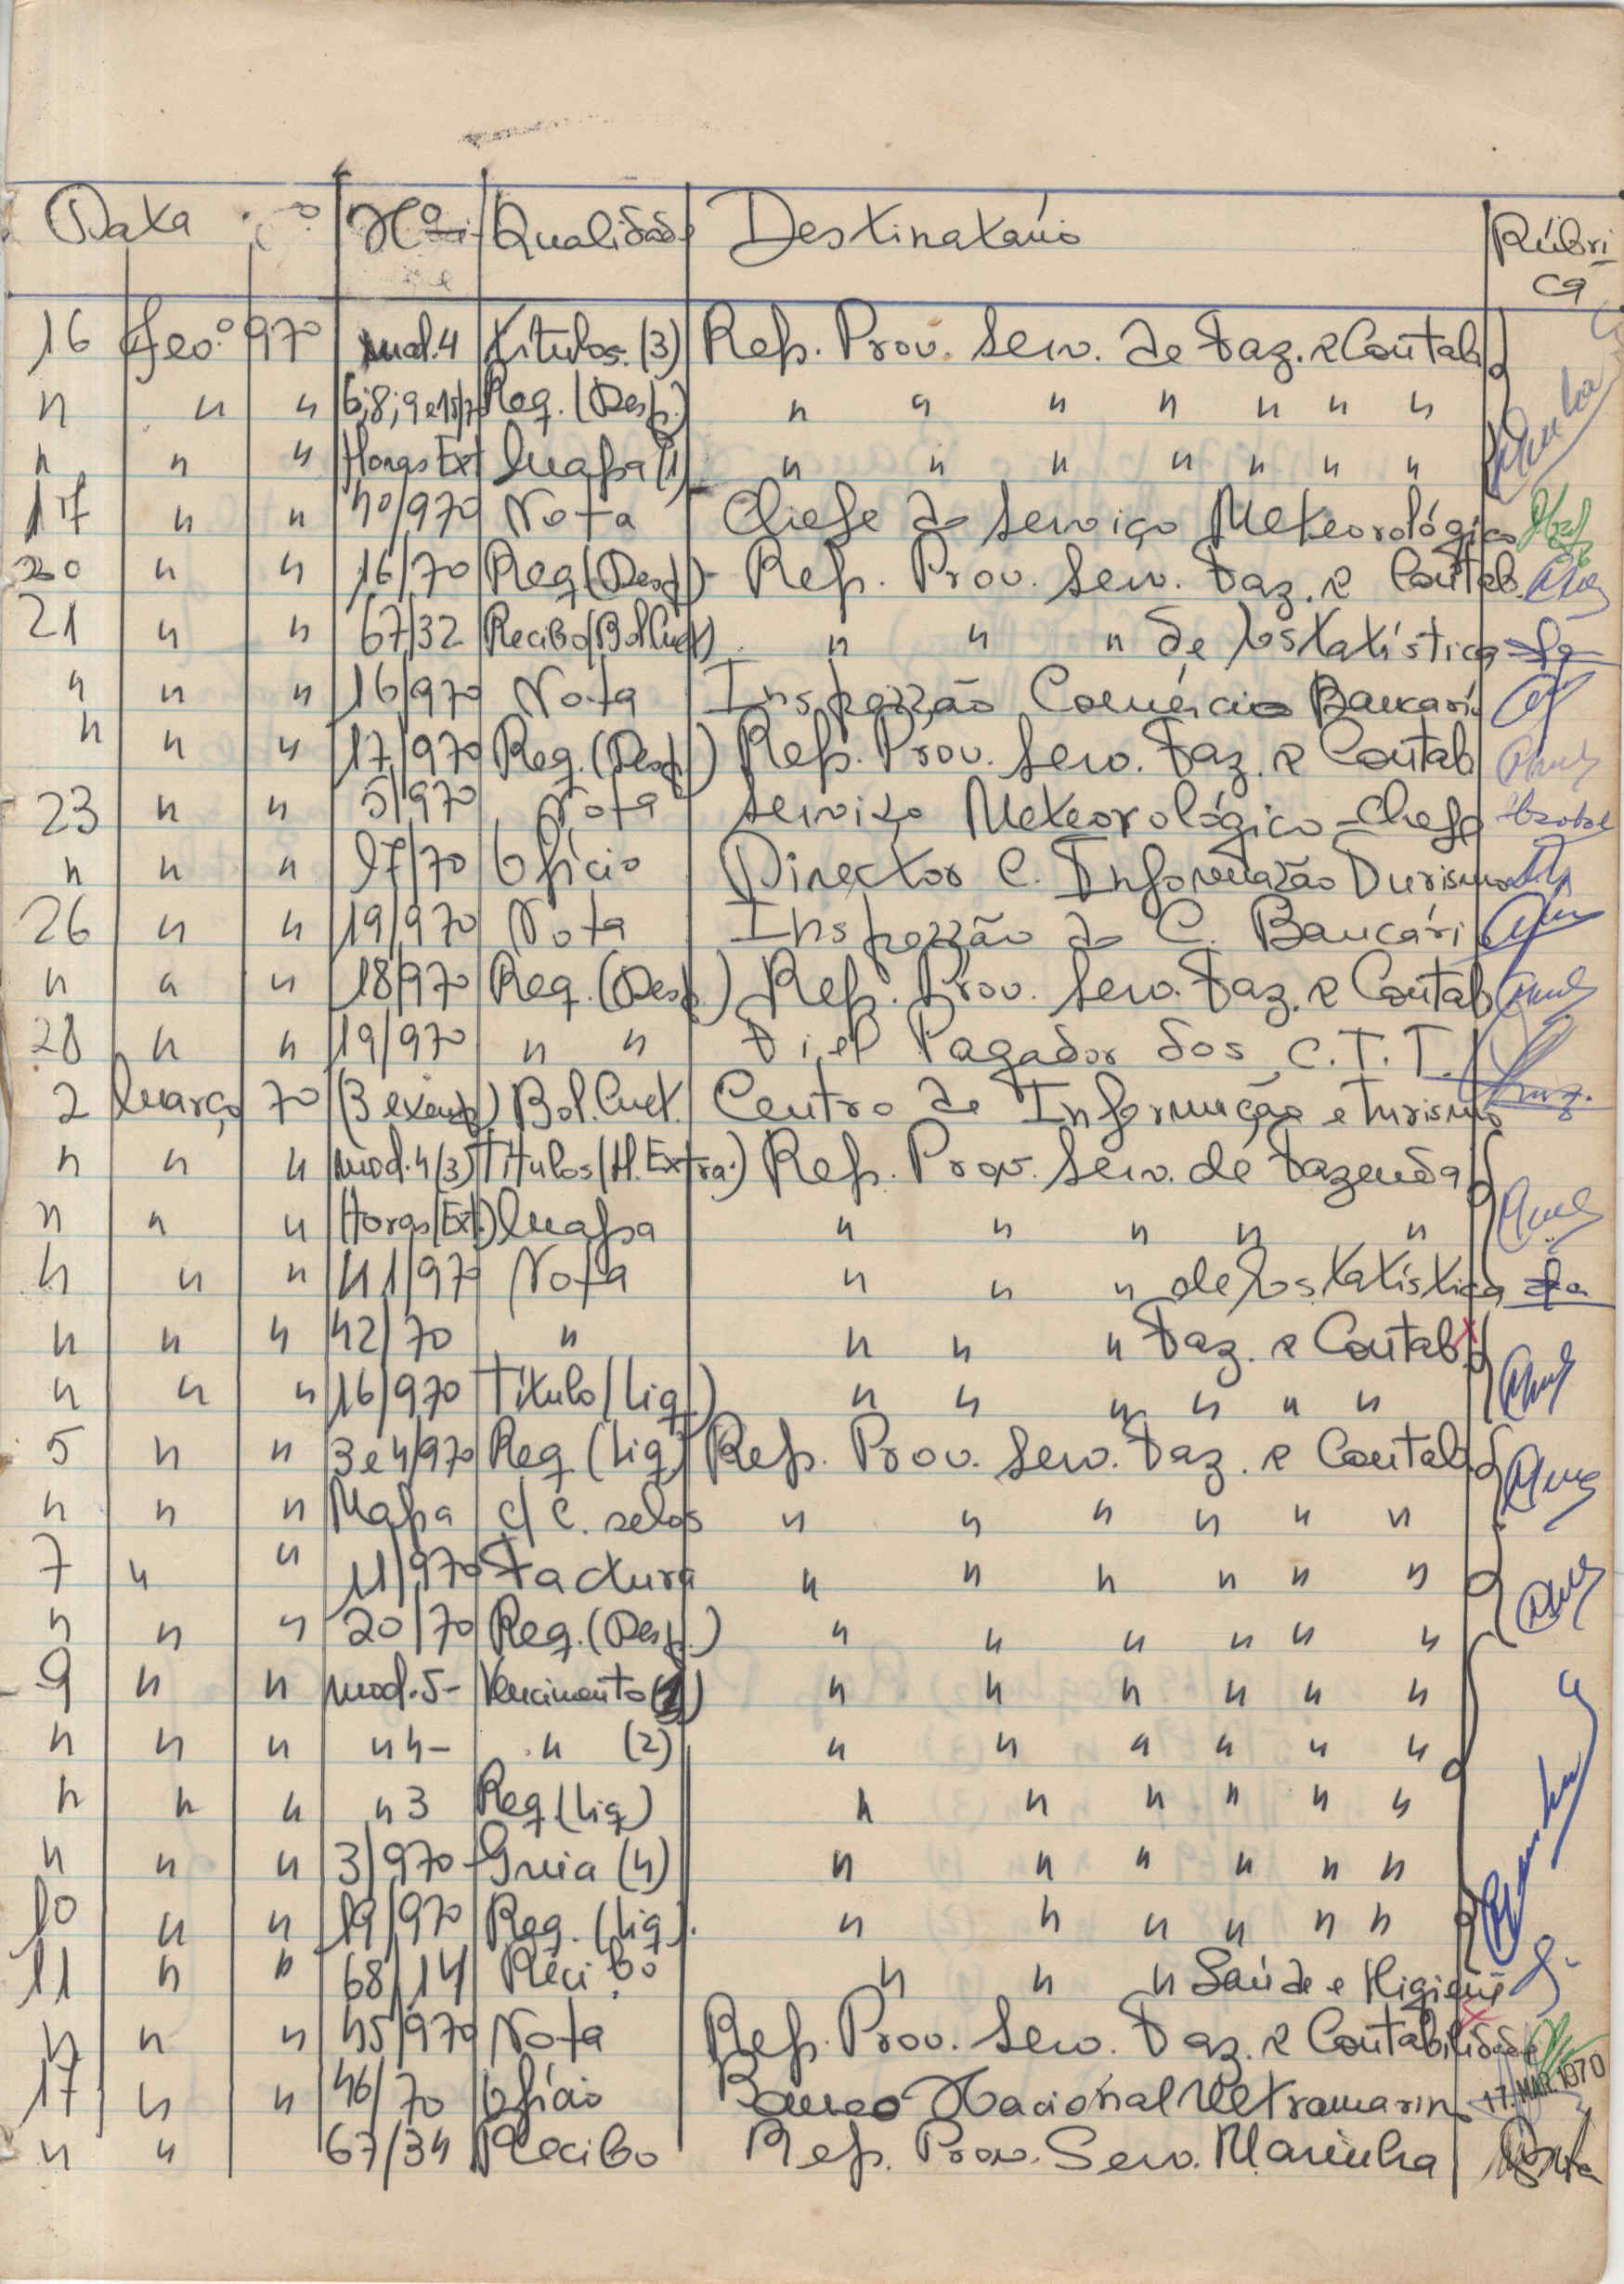 Data Nº Qualidade Destinatário Rúbrica
16 Fev.º 970 mod.4 Títulos (3) Rep. Prov. Serv. de Faz. e Contab.
" " " 6;8;9 e 15/70 Req. (Desp.) " " " " " " "
" " " Horas Ext Mapa (1) " " " " " " "
17 " " 40/970 Nota Chefe do Serviço Meteorológico
20 " " 16/70 Req (Desp) Rep. Prov. Serv. Faz. e Contab.
21 " " 67/32 Recibo (Bol Cuet) " " " de Estatística
" " " 16/970 Nota Inspecção Comércio Bancári
" " " 17/970 Req. (Desp.) Rep. Prov. Serv. Faz. e Contab
23 " " 5/970 Nota Serviço Meteorológico - Chefe
" " " 97/70 Ofício Director C. Informação Turismo
26 " " 19/970 Nota Inspecção do C. Bancári
" " " 18/970 Req. (Desp.) Rep. Prov. Serv. Faz. e Contab
28 " " 19/970 " " Fiel Pagador dos C.T.T.
2 Março 70 (3 exemp.) Bol. Cuet. Centro de Informação e Turismo
" " " mod.4 (3) Títulos (H. Extra.) Rep. Prov. Serv. de Fazenda
" " " Horas (Ext.) Mapa " " " " "
" " " 41/970 Nota " " " de Estatística
" " " 42/70 " " " " Faz. e Contab.
" " " 16/970 Título (Liq.) " " " " " "
5 " " 3 e 4/970 Req (Liq) Rep. Prov. Serv. Faz. e Contab.
" " " Mapa c/ C. selos " " " " " "
7 " " 11/970 Factura " " " " " "
" " " 20/70 Req. (Desp.) " " " " " "
9 " " mod.5- Vencimento " " " " " "
" " " " 4- " (2) " " " " " "
" " " " 3 Req. (Liq) " " " " " "
" " " 3/970 - Guia (4) " " " " " "
10 " " 19/970 Req. (Liq). " " " " " "
11 " " 68/14 Recibo " " " Saúde e Higiene
" " " 45/970 Nota Rep. Prov. Serv. Faz. e Contabilidade
17 " " 46/70 Ofício Banco Nacional Ultramarino 17. MAR. 1970
" " 67/34 Recibo Rep. Prov. Serv. Marinha